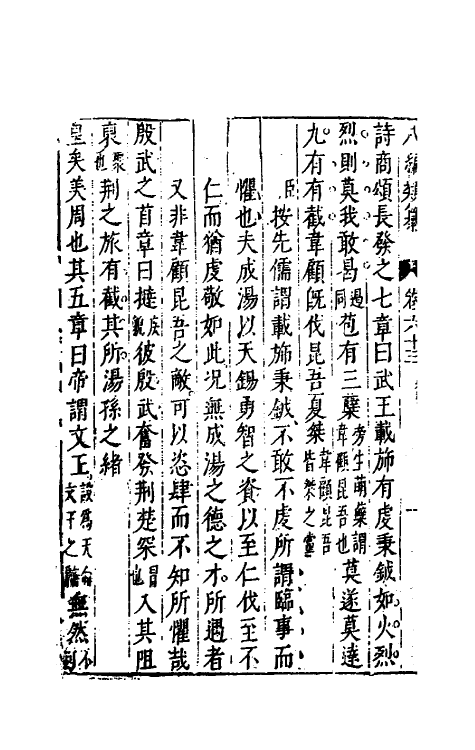 八編類纂　卷六十三
詩商頌長發之七章曰武王載斾有虔秉鉞如火烈
烈則莫我敢曷過同苞有三蘖旁生萌蘖謂韋顧昆吾也莫遂莫達
九有有截韋顧既伐昆吾夏桀韋顧昆吾皆桀之黨
臣按先儒謂載斾秉鉞不敢不虔所謂臨事而
懼也夫成湯以天錫勇智之資以至仁伐至不
仁而猶虔敬如此况無成湯之德之才所遇者
又非韋顧昆吾之敵可以恣肆而不知所懼哉
殷武之首章曰撻疾貌彼殷武奮發荆楚罙冒也入其阻
裒聚也荆之旅有截其所湯孫之緒
皇矣美周也其五章曰帝謂文王設爲天命文王之無然不